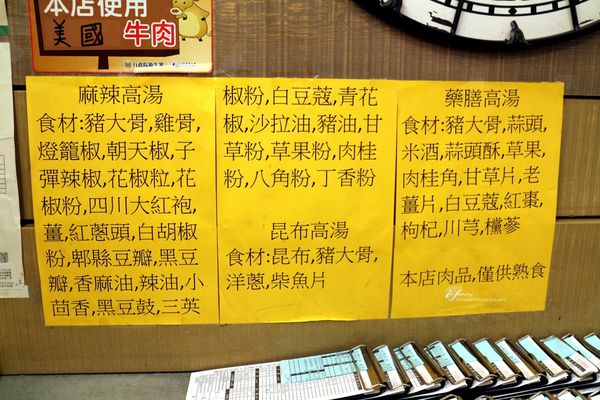 本店使用
美國 牛肉
行政院衛生署
麻辣高湯
食材:豬大骨,雞骨,
燈籠椒,朝天椒,子
彈辣椒,花椒粒,花
椒粉,四川大紅袍,
薑,紅蔥頭,白胡椒
粉,郫縣豆瓣,黑豆
瓣,香麻油,辣油,小
茴香,黑豆鼓,三英
椒粉,白豆蔻,青花
椒,沙拉油,豬油,甘
草粉,草果粉,肉桂
粉,八角粉,丁香粉
昆布高湯
食材:昆布,豬大骨,
洋蔥,柴魚片
藥膳高湯
食材:豬大骨,蒜頭,
米酒,蒜頭酥,草果,
肉桂角,甘草片,老
薑片,白豆蔻,紅棗,
枸杞,川芎,欉蔘
本店肉品,僅供熟食